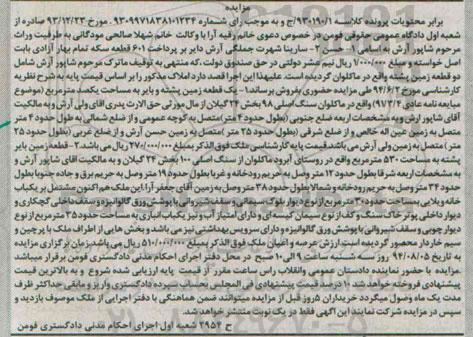 مزایده
برابر محتویات پرونده کلاسه ۹۳۰۱۹۰/۱/ج و به موجب رای شماره ۹۳۰۹۹۷۱۸۳۸۱۰۱۲۳۴ . مورخ ۹۳/۱۲/۲۳ صادره از
شعبه اول دادگاه عمومی حقوقی فومن در خصوص دعوی خانم رقیه آرا با وکالت خانم شهلا صالحی مودگانی به طرفیت وراث
مرحوم شاپور آرش به اسامی ۱- حسن ۲- سارینا شهرت جملگی آرش دایر بر پرداخت ۶۰۱ قطعه سکه تمام بهار آزادی بابت
اصل خواسته و مبلغ ۷/۰۰۰/۰۰۰ ریال نیم عشر دولتی در حق صندوق دولت ،که منتهی به توقیف ماترک مرحوم شاپور آرش شامل
دو قطعه زمین پشته واقع در ماکلوان گردیده است. علیهذا این اجرا قصد دارد املاک مذکور را بر اساس قیمت پایه به شرح نظریه
کارشناسی مورخ ۹۴/۶/۲ طی مزایده حضوری بفروش برساند۱- یک قطعه زمین پشته و بایر به مساحت یکصد مترمربع (موضوع
مبایعه نامه عادی ۹۷۳/۴) واقع در ماکلوان سنگ اصلی ۹۸ بخش ۲۴ گیلان از مال مورثی حق الارث پدری آقای ولی آرش و به مالکیت
آقای شاپور آرش و به مشخصات اربعه ضلع جنوبی (بطول حدود ۴ متر)متصل به کوچه عمومی و از ضلع شمالی به طول حدود ۴ متر
متصل به زمین عین اله خالص و از ضلع شرقی (بطول حدود ۲۵ متر )متصل به زمین حسن آرش و از ضلع غربی (بطول حدود ۲۵
متر) متصل به زمین ولی آرش می باشد.قیمت پایه کارشناسی ملک فوق الذکر بمبلغ ۲۷۰/۰۰۰/۰۰۰ ریال می باشد.۲- قطعه زمین بایر
پشته به مساحت ۵۳۰ مترمربع واقع در روستای آبرود ماکلوان از سنگ اصلی ۱۰۰ بخش ۲۴ گیلان و به مالکیت آقای شاپور آرش و
به مشخصات اربعه شرقا بطول حدود ۱۲ متر وصل به حریم رودخانه و غربا بطول حدود ۱۹ متر وصل به حریم برق و جاده جنوبا بطول
حدود ۳۴ متر وصل به حریم رودخانه و شمالا بطول حدود ۳۸ متر وصل به زمین آقای جعفر آرا.این ملک هم اکنون مشتمل بر یکباب
خانه ویلایی به مساحت حدود ۳۰ مترمربع از نوع دیوار بلوک سیمانی و سقف شیروانی با پوشش ورق گالوانیزه و سقف داخلی گچکاری و
دیوار داخلی پوتر خاک سنگ و کف از نوع سیمان کیسه ای و دارای امتیاز آب و نیز یکباب انباری به مساحت حدود ۳۵ مترمربع از نوع
دیوار چوبی و سقف شیروانی با پوشش ورق گالوانیزه و دارای سرویس بهداشتی نیز می باشد و بخش هایی از اطراف ملک با پرچین و
سیم خاردار محصور گردیده است ارزش عرصه و اعیان ملک فوق الذکر بمبلغ ۵۱۰/۰۰۰/۰۰۰ ریال می باشد.زمان برگزاری مزایده
به تاریخ ۹۴/۰۸/۰۵ روز سه شنبه ساعت ۹ الی ۱۰ صبح در محل دفتر اجرای احکام مدنی دادگستری فومن برقرار میباشد
مزایده با حضور نماینده دادستان عمومی وانقلاب راس ساعت مقرر از قیمت پایه ارزیابی شده شروع و به بالاترین قیمت
پیشنهادی فروخته خواهد شد.۱۰ درصد قیمت پیشنهادی فی المجلس بحساب سپرده دادگستری واریز و مابقی حداکثر ظرف
مدت یک ماه وصول میگردد خریداران ۵روز قبل از مزایده میتوانند ضمن هماهنگی با دفتر اجرایی از ملک موصوف بازدید و
سپس در مزایده شرکت نمایند این آگهی فقط در یک نوبت منتشر خواهد شد.
ح ۳۹۵۴ شعبه اول اجرای احکام مدنی دادگستری فومن